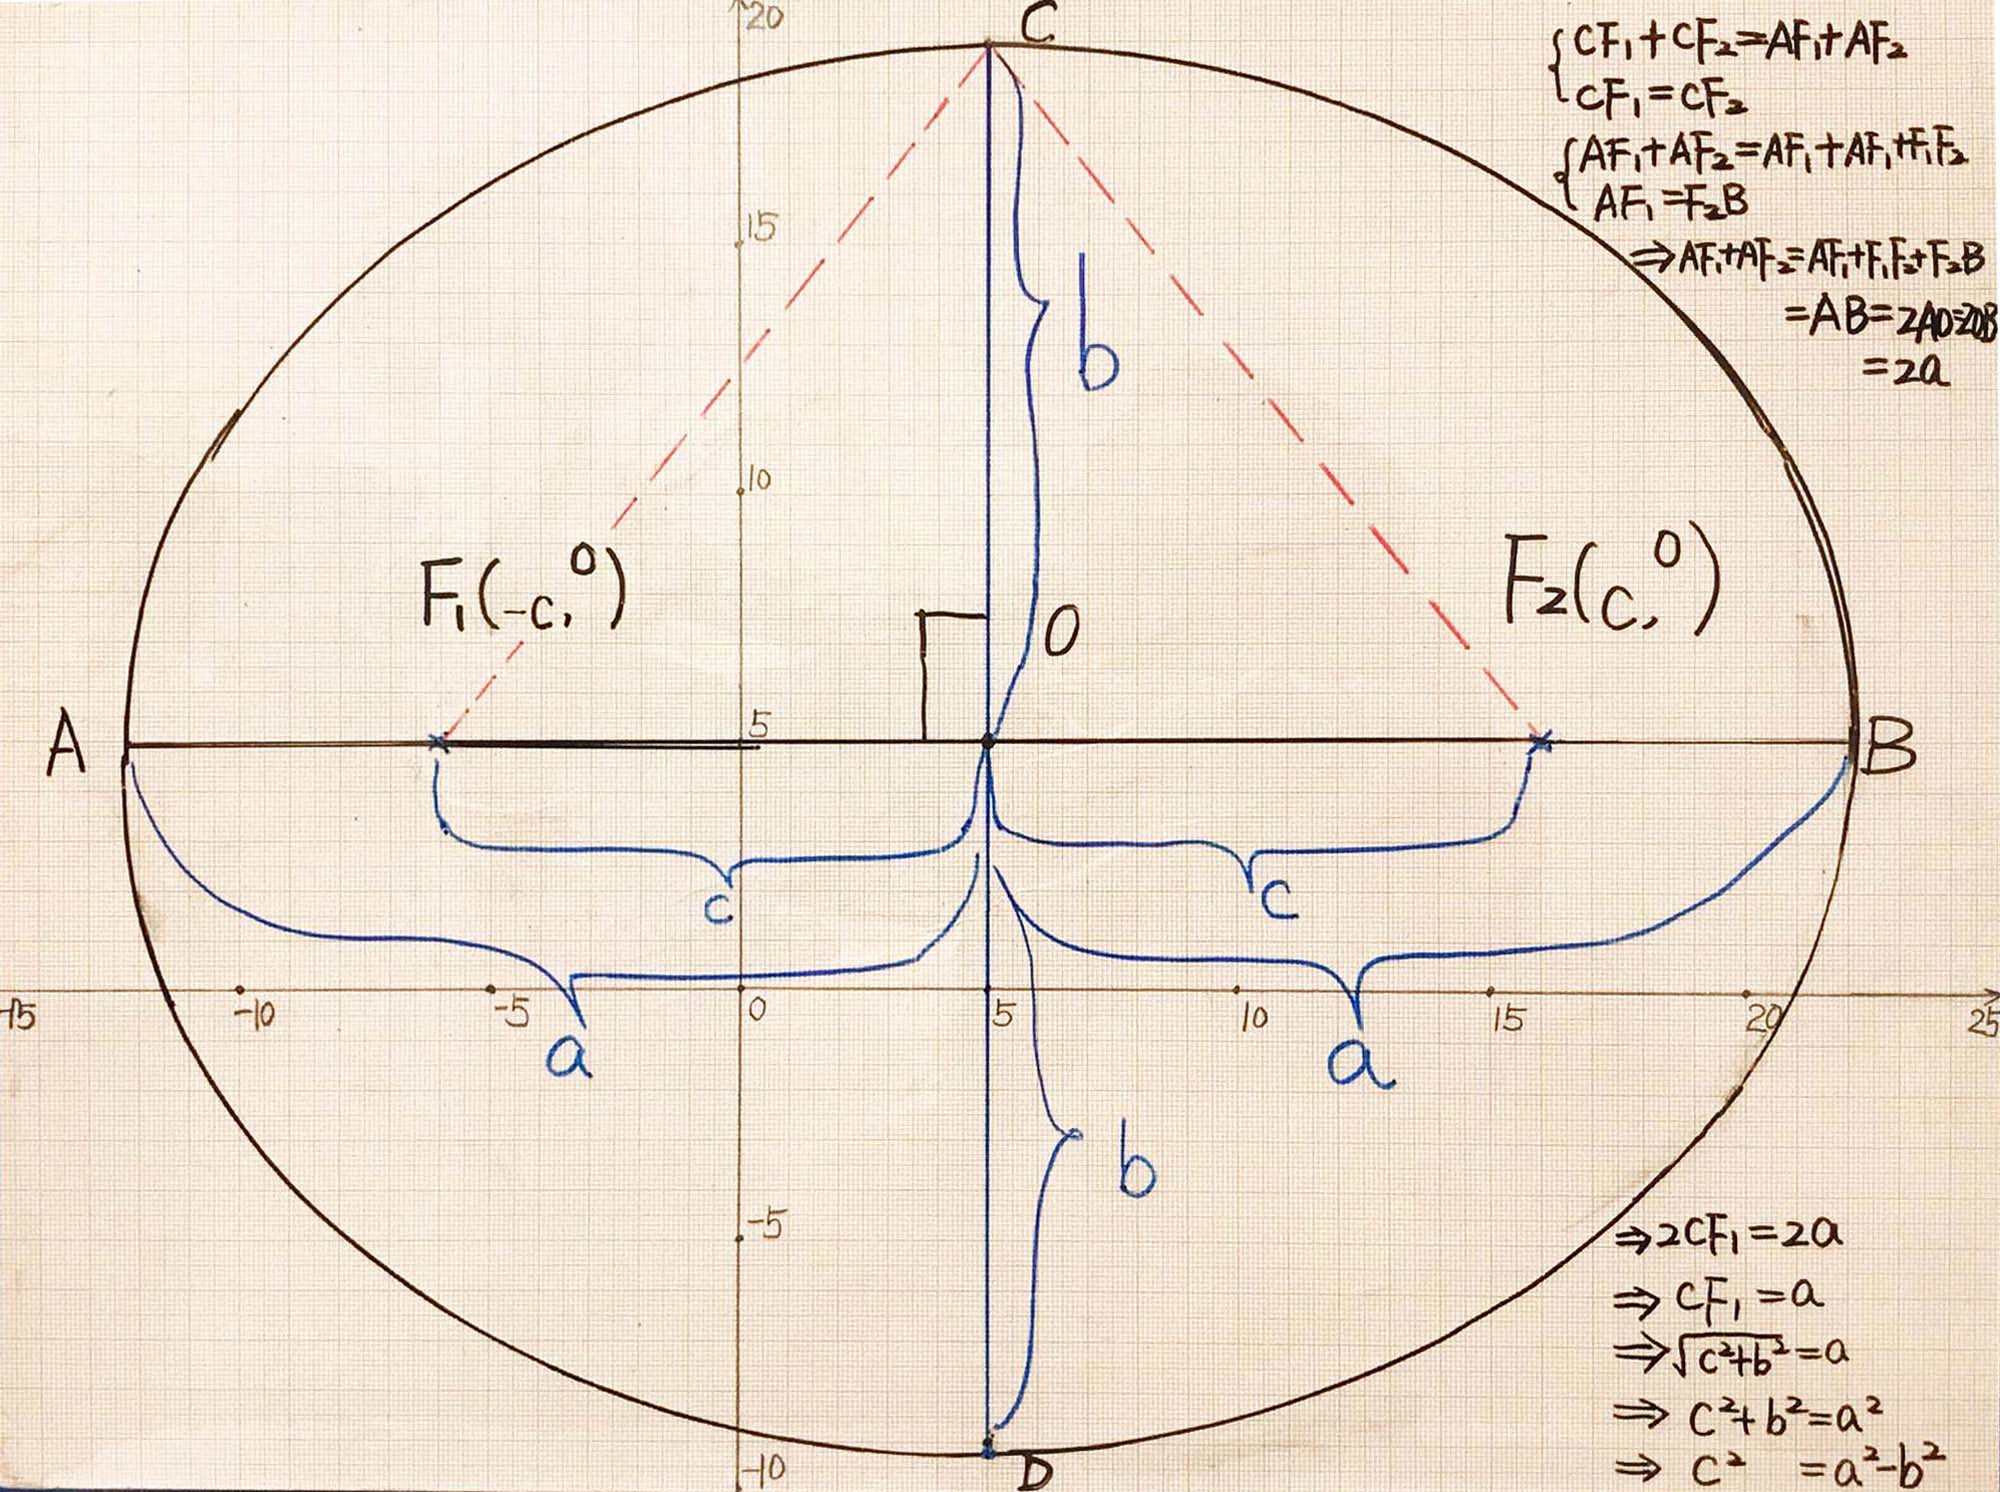 20
C
{CF₁+CF₂=AF₁+AF₂
CF₁=CF₂
{AF₁+AF₂=AF₁+AF₁+F₁F₂
AF₁=F₂B
⇒AF₁+AF₂=AF₁+F₁F₂+F₂B
=AB=2AO=2OB
=2a
15
b
10
F₁(-c, 0)
O
F₂(c, 0)
A
5
B
c
c
-15
-10
-5
0
5
10
15
20
25
a
a
b
-5
⇒2CF₁=2a
⇒CF₁=a
⇒√c²+b²=a
⇒c²+b²=a²
⇒c² =a²-b²
-10
D